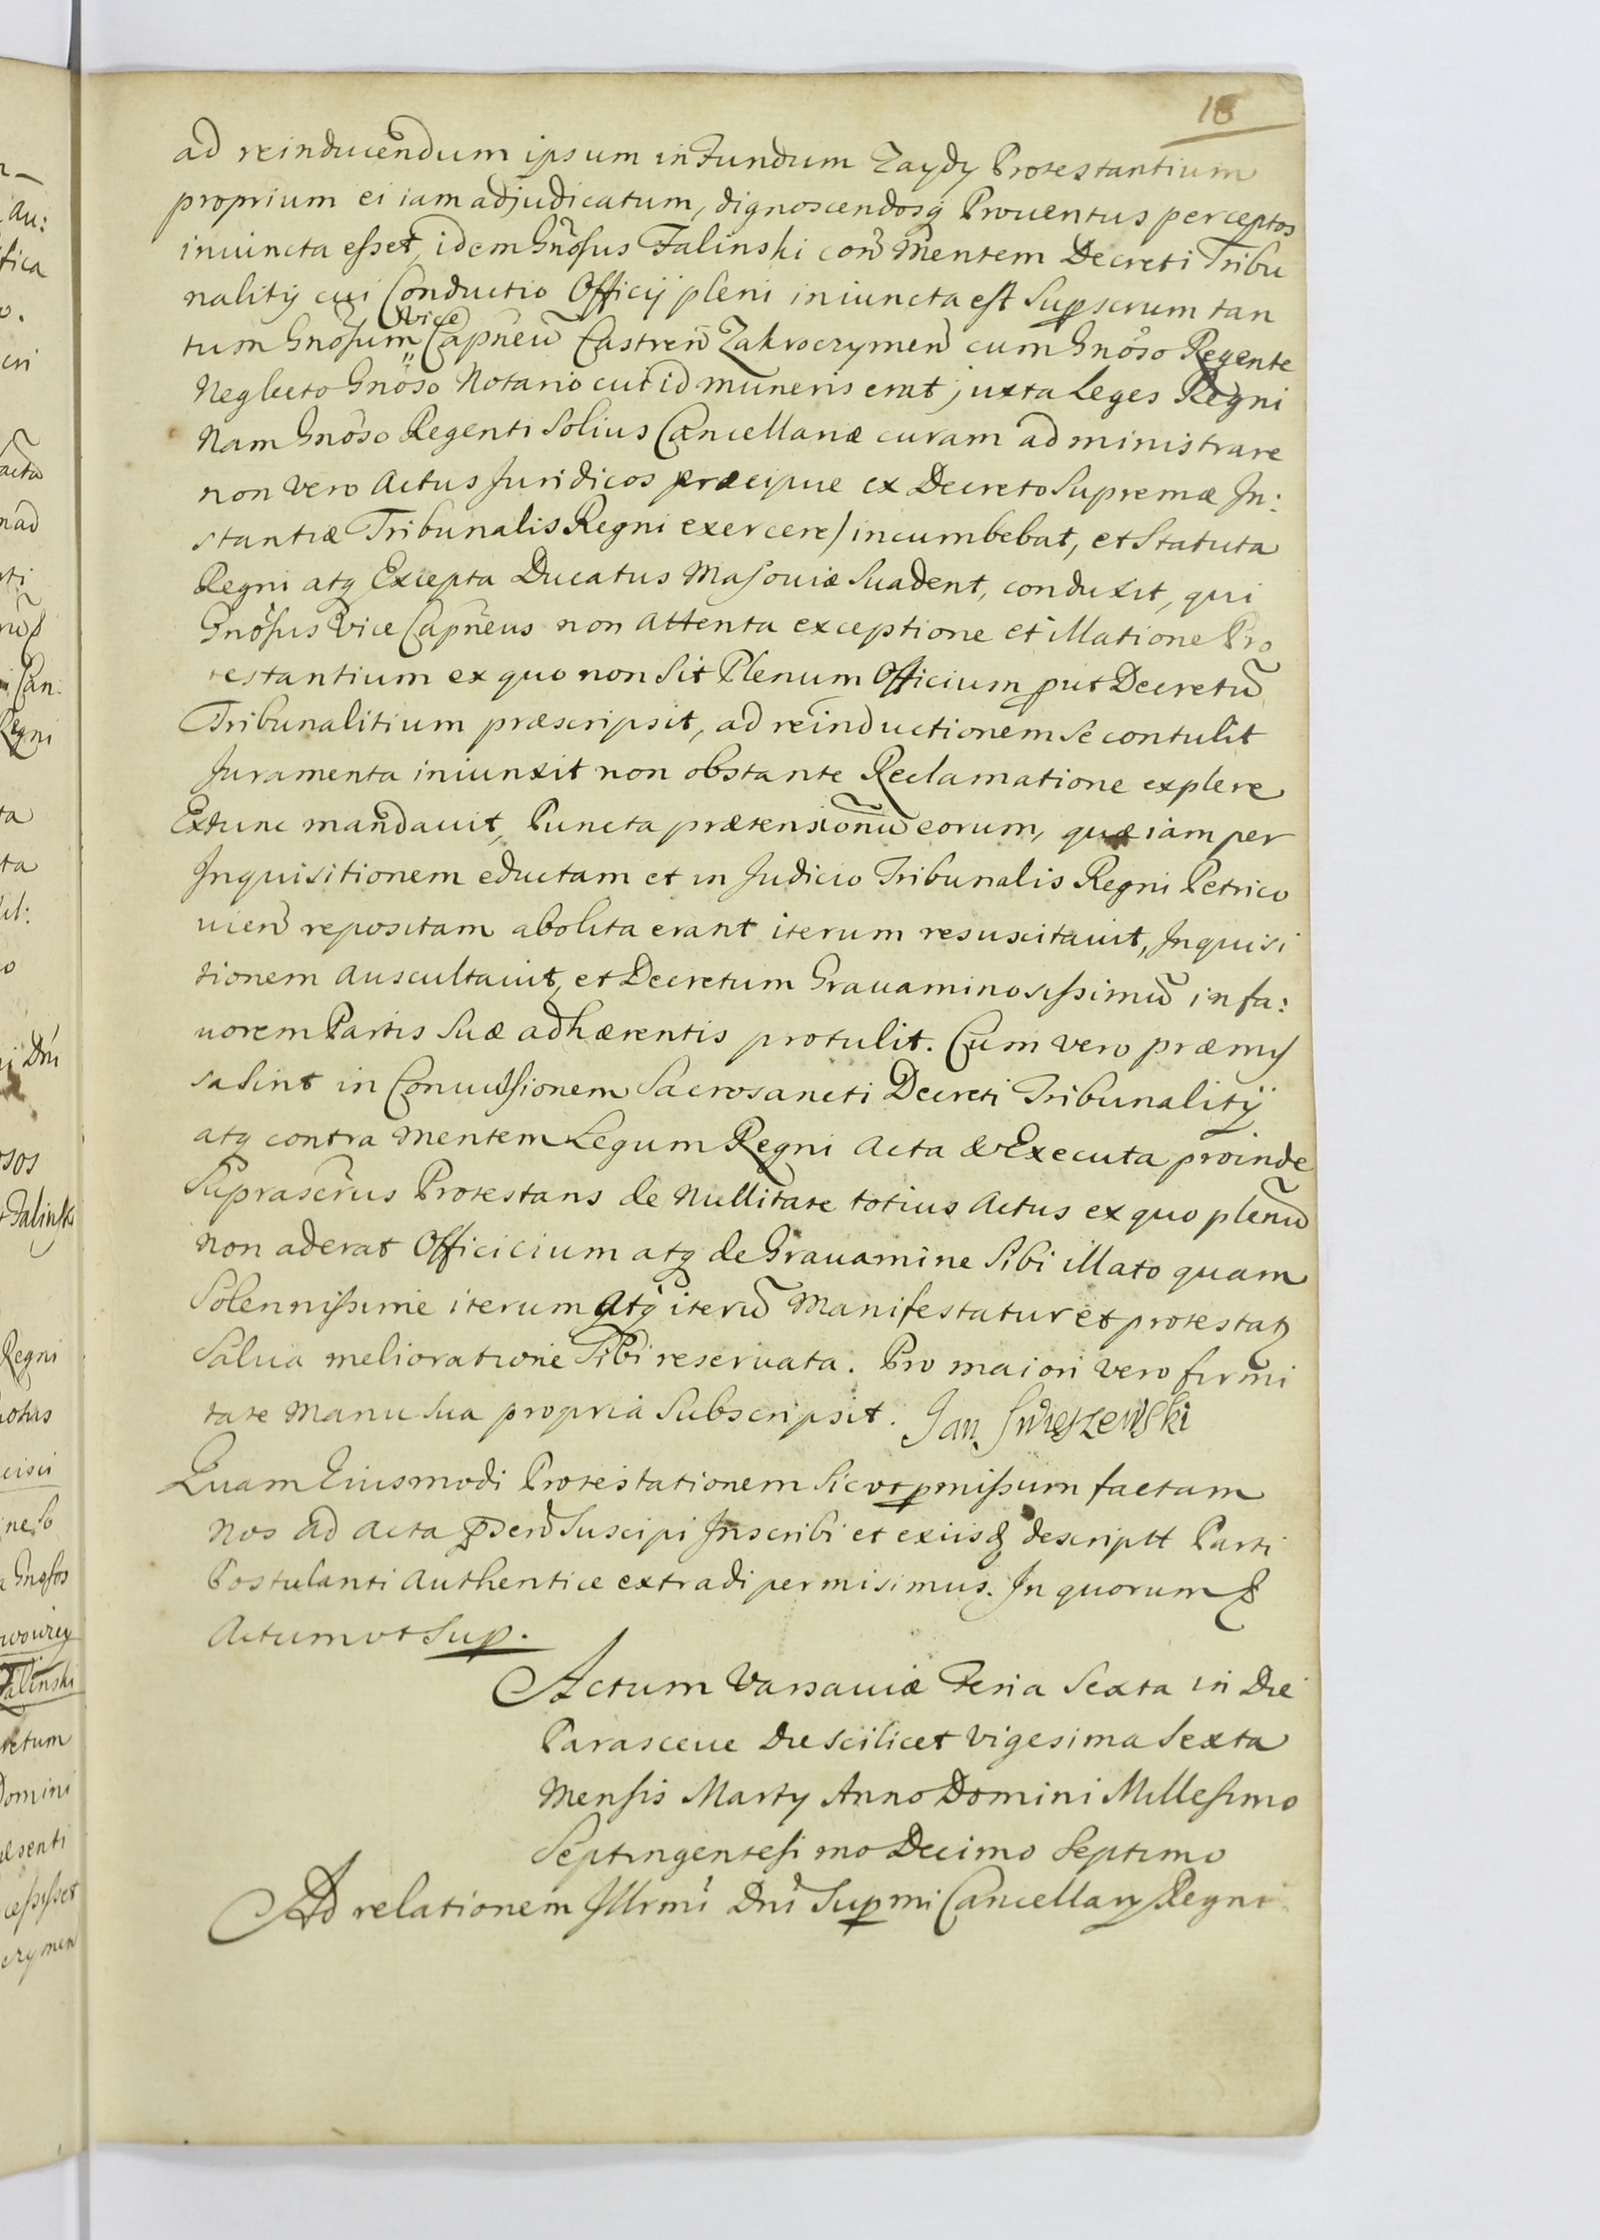 18
ad reinducendum ipsum in Fundum Zaydy Protestantium
proprium ei iam adjudicatum, dignoscendosq Prouentus perceptos
iniuncta esset, idem Gnosus Falinski con Mentem Decreti Tribu
nalitij cui Conductio Officij pleni iniuncta est Supscrum tan
tum Gnosum Vice Capneu Castren Zakroczymen cum Gnoso Regente
Neglecto Gnoso Notario cui id muneris erat juxta Leges Regni
Nam Gnoso Regenti Solius Cancellariæ curam administrare
non vero Actus Juridicos præcipue ex Decreto Supremæ In:
stantiæ Tribunalis Regni exercere/ incumbebat, et Statuta
Regni atq Excepta Ducatus Masouiæ Suadent, conduxit, qui
Gnosus Vice Capneus non attenta exceptione et illatione Pro
testantium ex quo non Sit Plenum Officium put Decretu
Tribunalitium præscripsit, ad reinductionem Se contulit
Juramenta iniunxit non obstante Reclamatione explere
Extunc mandauit, Puncta prætensionu eorum, quæ iam per
Inquisitionem eductam et in Judicio Tribunalis Regni Petrico
uien repositam abolita erant iterum resuscitauit, Inquisi
tionem Auscultauit, et Decretum Grauaminosissimu in fa:
uorem Partis Suæ adhærentis protulit. Cum vero præmis
sa Sint in Conuulsionem Sacrosancti Decreti Tribunalitij
atq contra Mentem Legum Regni Acta & Executa proinde
Suprascrus Protestans de Nullitate totius Actus ex quo plenu
non aderat Officicium atq de Grauamine Sibi illato quam
Solennissime iterum atq iteru Manifestatur et protestatq
Salua melioratione Sibi reseruata. Pro maiori vero firmi
tate Manu Sua propria Subscripsit. Jan Swięszewski
Quam Eiusmodi Protestationem Sic vt pmissum factam
Nos ad Acta psen Suscipi Inscribi et ex iisq descriptt Parti
Postulanti Authentice extradi permisimus. In quorum &
Actum vt Sup.
Actum Varsauiæ Feria Sexta in Die
Parasceue die scilicet vigesima Sexta
Mensis Martij Anno Domini Millesimo
Septingentesimo Decimo Septimo
Ad relationem Illrmi Dni Supmi Cancellarij Regni